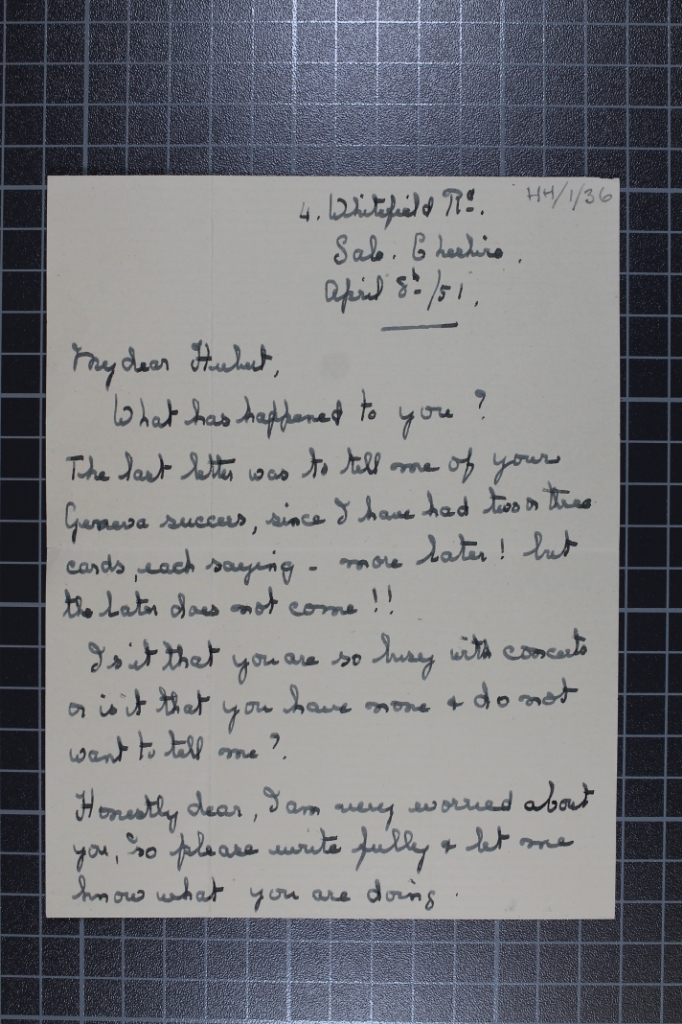 H4/1/36
4. Whitefield Rd.
Sale. Cheshire.
April 8th/51.
My dear Hubert,
What has happened to you ?
The last letter was to tell me of your
Geneva success, since I have had two or three
cards, each saying - more later ! but
the later does not come !!
Is it that you are so busy with concerts
or is it that you have none & do not
want to tell me ?.
Honestly dear, I am very worried about
you, so please write fully & let me
know what you are doing.